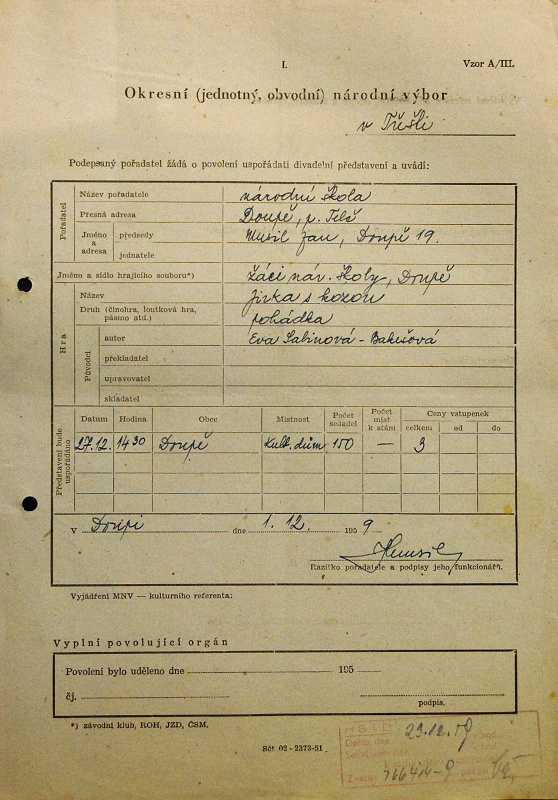 I.
Vzor A/III.
Okresní (jednotný, obvodní) národní výbor
v Třešti
Podepsaný pořadatel žádá o povolení uspořádati divadelní představení a uvádí:
Pořadatel
Název pořadatele národní škola
Přesná adresa Doupě, p. Telč
Jméno a adresa předsedy Musil Jan, Doupě 19.
jednatele
Jméno a sídlo hrajícího souboru*) žáci nár. školy, Doupě
Hra
Název Jirka s kozou
Druh (činohra, loutková hra, pásmo atd.) pohádka
Původci
autor Eva Sabinová - Bakešová
překladatel
upravovatel
skladatel
Představení bude uspořádáno
Datum Hodina Obec Místnost Počet sedadel Počet míst k stání Ceny vstupenek
celkem od do
27.12. 14 30 Doupě Kult. dům 150 — 3
V Doupi dne 1. 12. 195 9
Razítko pořadatele a podpisy jeho funkcionářů.
Vyjádření MNV — kulturního referenta:
Vyplní povolující orgán
Povolení bylo uděleno dne 195
čj.
podpis.
*) závodní klub, ROH, JZD, ČSM.
Sčt 02 - 2373-51
Došlo dne: 23.12.59 hod.